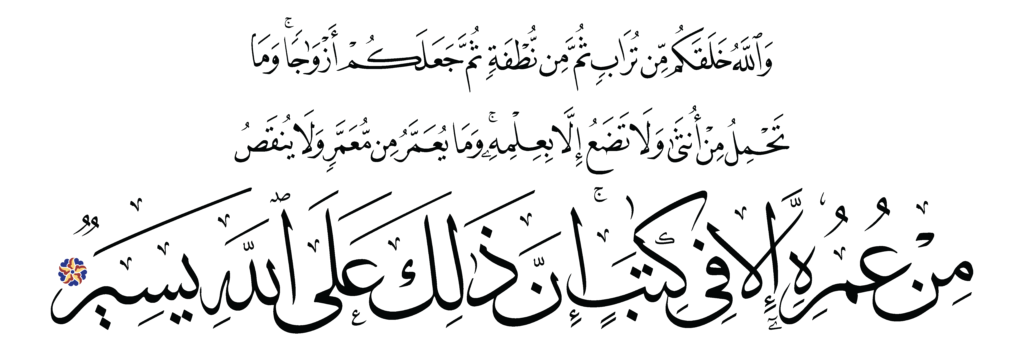 وَٱللَّهُ خَلَقَكُم مِّن تُرَابٍ ثُمَّ مِن نُّطْفَةٍ ثُمَّ جَعَلَكُمْ أَزْوَٰجًا ۚ وَمَا
تَحْمِلُ مِنْ أُنثَىٰ وَلَا تَضَعُ إِلَّا بِعِلْمِهِۦ ۚ وَمَا يُعَمَّرُ مِن مُّعَمَّرٍ وَلَا يُنقَصُ
مِنْ عُمُرِهِۦٓ إِلَّا فِى كِتَٰبٍ ۚ إِنَّ ذَٰلِكَ عَلَى ٱللَّهِ يَسِيرٌ